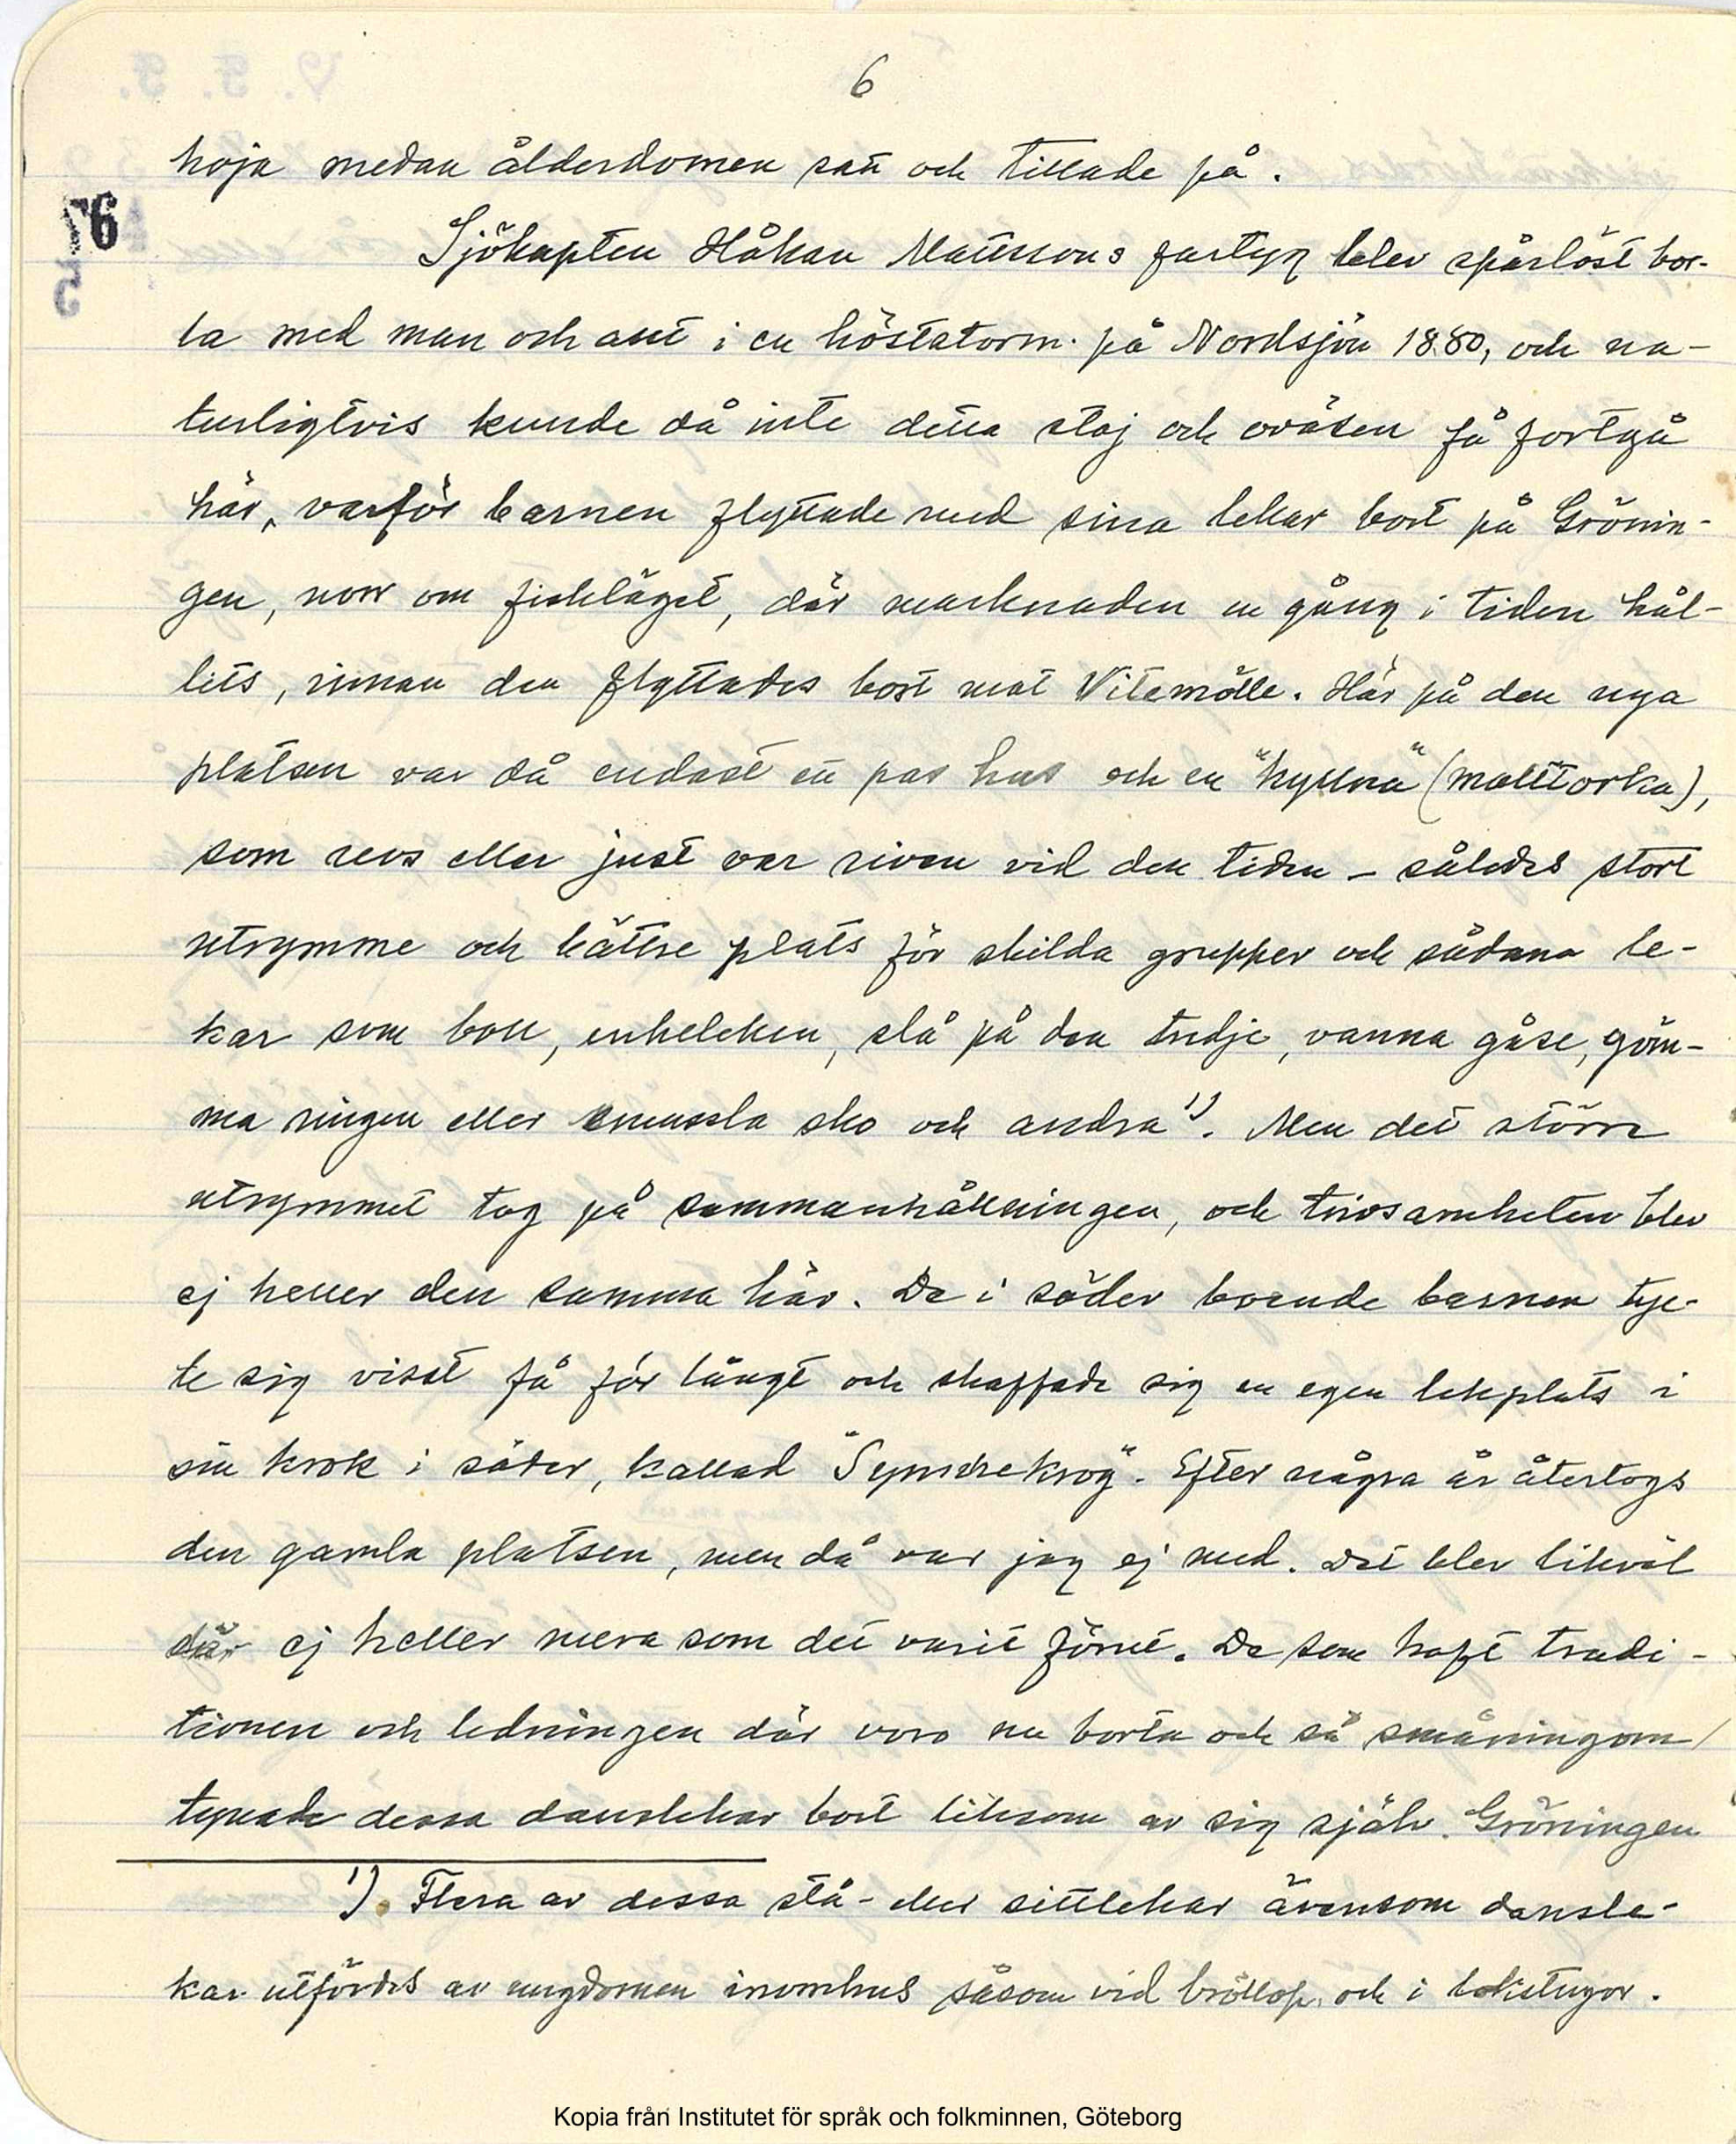 6
76
hoja medan ålderdomen satt och tittade på.
Sjökapten Håkan Månssons fartyg blev spårlöst bor-
ta med man och allt i en höststorm på Nordsjön 1880, och na-
turligtvis kunde då inte detta stoj och oväsen få fortgå
här, varför barnen flyttade med sina lekar bort på Grönin-
gen, norr om fiskläget, där marknaden en gång i tiden hål-
lits, innan den flyttades bort mot Vitemölle. Här på den nya
platsen var då endast ett par hus och en "kyllna" (malttorka),
som revs eller just var riven vid den tiden – således stort
utrymme och bättre plats för skilda grupper och sådana le-
kar som boll, enkeleken, slå på den tredje, vanna gåse, göm-
ma ringen eller smussla sko och andra 1). Men det större
utrymmet tog på sammanhållningen, och trivsamheten blev
ej heller den samma här. De i söder boende barnen tyc-
te sig visst få för långt och skaffade sig en egen lekplats i
sin krok i söder, kallad "Synnrekrog". Efter några år återtogs
den gamla platsen, men då var jag ej med. Det blev likväl
där ej heller mera som det varit förut. De som haft tradi-
tionen och ledningen där voro nu borta och så småningom
tynade dessa danslekar bort liksom av sig själv. Gröningen
1). Flera av dessa stå- eller sittlekar ävensom dansle-
kar utfördes av ungdomen inomhus såsom vid bröllop och i lekstugor.
Kopia från Institutet för språk och folkminnen, Göteborg